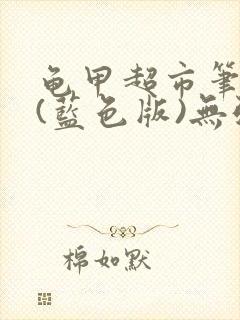 龟甲超市筆
(藍色版)無
棉如默